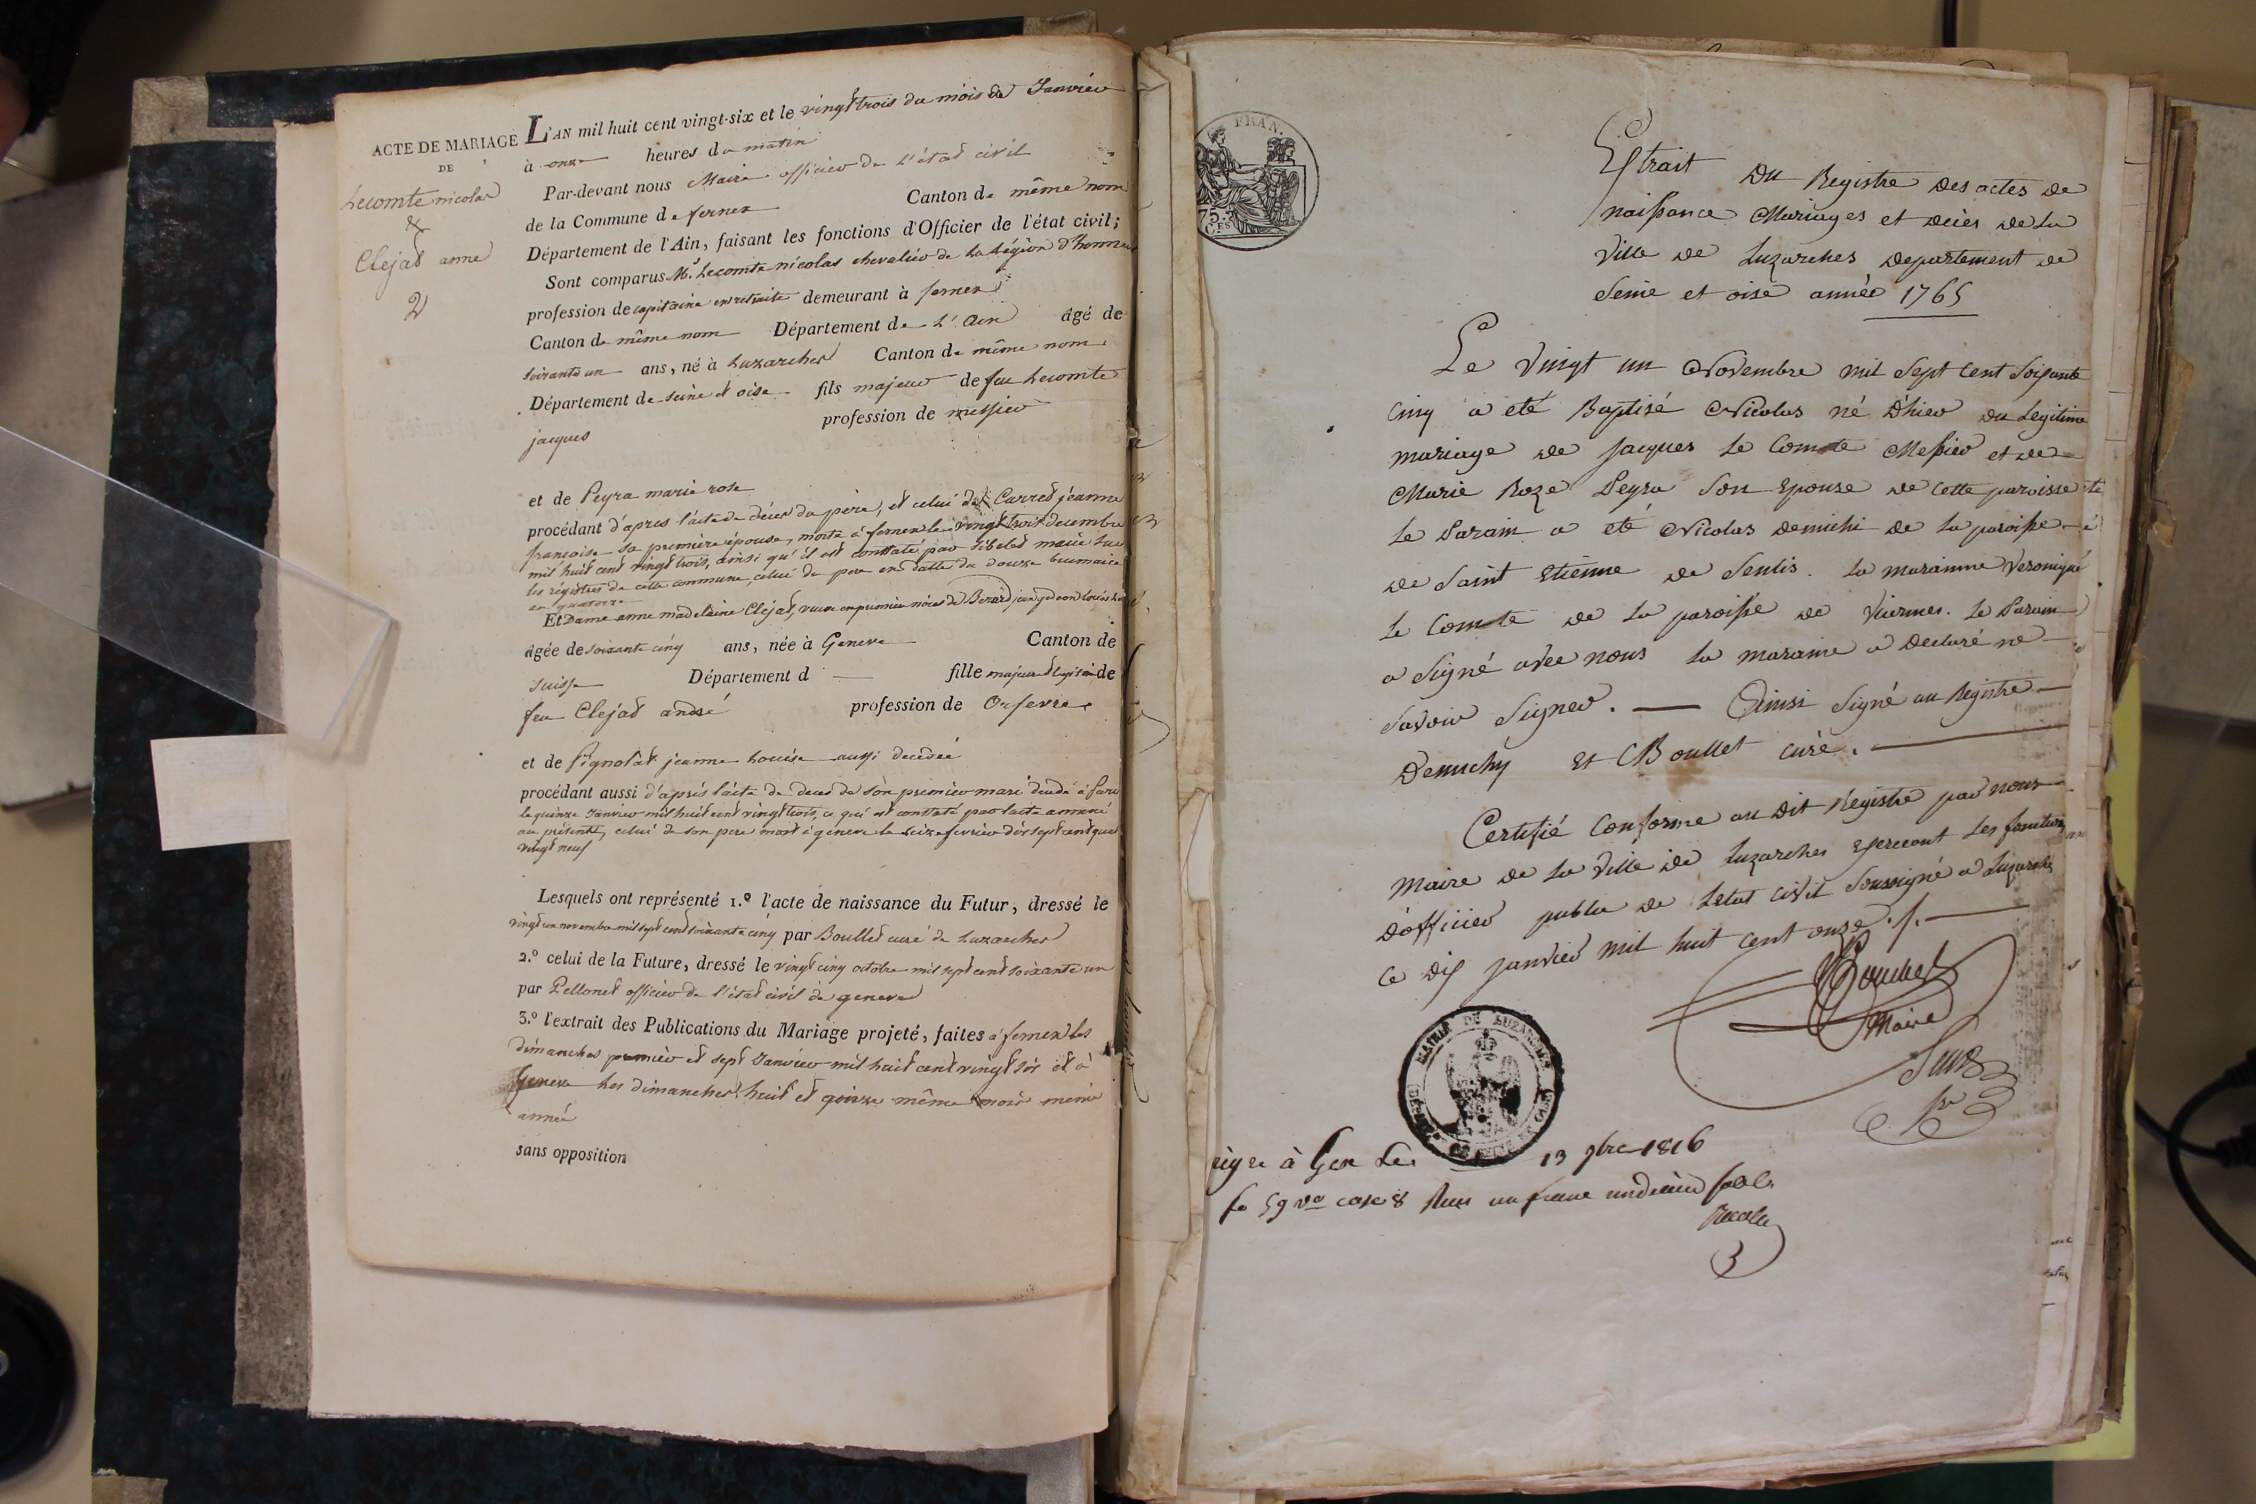 ACTE DE MARIAGE
DE
Lecomte nicolas
&
Clejat anne
2
L'AN mil huit cent vingt-six et le vingt trois du mois de Janvier
à onze heures du matin
Par-devant nous Maire officier de l'état civil
de la Commune de fernex Canton de même nom
Département de l'Ain, faisant les fonctions d'Officier de l'état civil;
Sont comparus Mr. Lecomte nicolas chevalier de la Légion d'honneur
profession de capitaine en retraite demeurant à fernex
Canton de même nom Département de L'Ain âgé de
soixante un ans, né à Luzarches Canton de même nom
Département de seine et oise fils majeur de feu Lecomte
jacques profession de messier
et de Peyra marie rose
procédant d'après l'acte de décès du père, et celui de Carred jeanne
françoise sa première épouse, morte à fernex le vingt trois decembre
mil huit cent vingt trois, ainsi qu'il est constaté par
les régistres de cette commune, celui du pere en datte du douze brumaire
an quatorze
Et Dame anne madelaine Clejat, veuve en premier nôces de
âgée de soixante cinq ans, née à Geneve Canton de
suisse Département d fille majeure et legitime de
feu Clejat andré profession de Orfevre
et de Pignolat jeanne Louise aussi decedée
procédant aussi d'après l'acte de deces de son premier mari decedé à Paris
le quinze Janvier mil huit cent vingt trois, ce qui est constaté par l'acte annexé
au présent, celui de son pere mort à geneve le seize fevrier dix sept cent quatre
vingt neuf
Lesquels ont représenté 1.º l'acte de naissance du Futur, dressé le
vingt un novembre mil sept cent soixante cinq par Boullet curé de Luzarches
2.º celui de la Future, dressé le vingt cinq octobre mil sept cent soixante un
par Pellonet officier de l'état civil de geneve
3.º l'extrait des Publications du Mariage projeté, faites à fernex les
dimanches premier et sept Janvier mil huit cent vingt six et à
Geneve les dimanches huit et quinze même mois même
année
sans opposition
FRAN.
75.
C.ES
Extrait Du Registre des actes de
naissance Mariages et décès de la
Ville de Luzarches departement de
Seine et oise année 1765
Le Vingt un Novembre mil Sept cent Soixante
cinq a eté Baptisé Nicolas né D'hier du Legitime
mariage de Jacques Le Comte Messier et de
Marie Roze Peyra Son Epouse de cette paroisse
Le Parain a eté Nicolas demichi de la paroisse
de Saint Etienne de Senlis. La maraine Veronique
Le Comte de La paroisse de Viarmes. Le Parain
a Signé avec nous La maraine a Declaré ne
Savoir Signer. — Ainsi Signé au Registre
Demichy Et Boullet curé.
Certifié Conforme au Dit Registre par nous
Maire de la Ville de Luzarches exercent les fonctions
D'officier public de Letat civil Soussigné a Luzarches
ce dix janvier mil huit cent onze ./.
Bouchet
Maire
MAIRIE DE LUZARCHES
SEINE ET OISE
à Gex Le 13 9bre 1816
fo 59 vo case 8 Reçu un franc